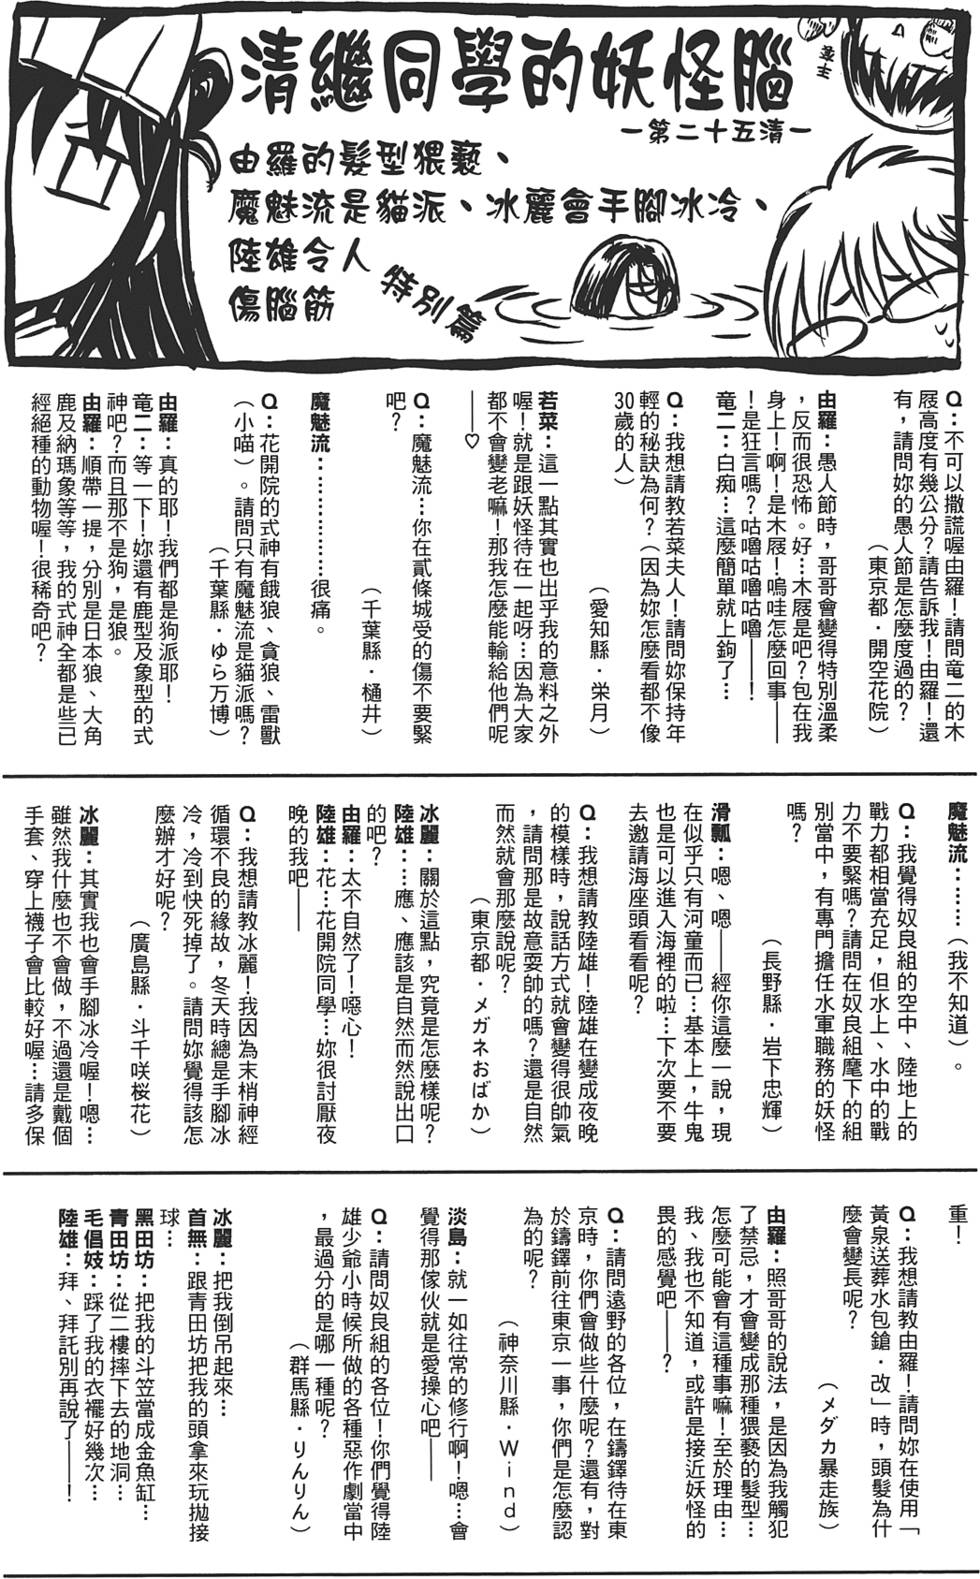 清繼同學的妖怪腦
—第二十五清—
由羅的髮型猥褻、
魔魅流是貓派、冰麗會手腳冰冷、
陸雄令人
傷腦筋
特別篇
Q：不可以撒謊喔由羅！請問竜二的木
屐高度有幾公分？請告訴我！由羅！還
有，請問妳的愚人節是怎麼度過的？
（東京都．開空花院）
由羅：愚人節時，哥哥會變得特別溫柔
，反而很恐怖。好…木屐是吧？包在我
身上！啊！是木屐！嗚哇怎麼回事——
！是狂言嗎？咕嚕咕嚕咕嚕——！
竜二：白痴…這麼簡單就上鉤了…
Q：我想請教若菜夫人！請問妳保持年
輕的秘訣為何？（因為妳怎麼看都不像
30歲的人）
（愛知縣．栄月）
若菜：這一點其實也出乎我的意料之外
喔！就是跟妖怪待在一起呀…因為大家
都不會變老嘛！那我怎麼能輸給他們呢
——♡
Q：魔魅流…你在貳條城受的傷不要緊
吧？
（千葉縣．樋井）
魔魅流：………………很痛。
Q：花開院的式神有餓狼、貪狼、雷獸
（小喵）。請問只有魔魅流是貓派嗎？
（千葉縣．ゆら万博）
由羅：真的耶！我們都是狗派耶！
竜二：等一下！妳還有鹿型及象型的式
神吧？而且那不是狗，是狼。
由羅：順帶一提，分別是日本狼、大角
鹿及納瑪象等等，我的式神全都是些已
經絕種的動物喔！很稀奇吧？
魔魅流：……（我不知道）。
Q：我覺得奴良組的空中、陸地上的
戰力都相當充足，但水上、水中的戰
力不要緊嗎？請問在奴良組麾下的組
別當中，有專門擔任水軍職務的妖怪
嗎？
（長野縣．岩下忠輝）
滑瓢：嗯、嗯——經你這麼一說，現
在似乎只有河童而已…基本上，牛鬼
也是可以進入海裡的啦…下次要不要
去邀請海座頭看看呢？
Q：我想請教陸雄！陸雄在變成夜晚
的模樣時，說話方式就會變得很帥氣
，請問那是故意耍帥的嗎？還是自然
而然就會那麼說呢？
（東京都．メガネおばか）
冰麗：關於這點，究竟是怎麼樣呢？
陸雄：…應、應該是自然而然說出口
的吧？
由羅：太不自然了！噁心！
陸雄：花…花開院同學…妳很討厭夜
晚的我吧——
Q：我想請教冰麗！我因為末梢神經
循環不良的緣故，冬天時總是手腳冰
冷，冷到快死掉了。請問妳覺得該怎
麼辦才好呢？
（廣島縣．斗千咲桜花）
冰麗：其實我也會手腳冰冷喔！嗯…
雖然我什麼也不會做，不過還是戴個
手套、穿上襪子會比較好喔…請多保
重！
Q：我想請教由羅！請問妳在使用「
黃泉送葬水包鎗．改」時，頭髮為什
麼會變長呢？
（メダカ暴走族）
由羅：照哥哥的說法，是因為我觸犯
了禁忌，才會變成那種猥褻的髮型…
怎麼可能會有這種事嘛！至於理由…
我、我也不知道，或許是接近妖怪的
畏的感覺吧——？
Q：請問遠野的各位，在鑄鐸待在東
京時，你們會做些什麼呢？還有，對
於鑄鐸前往東京一事，你們是怎麼認
為的呢？
（神奈川縣．Ｗｉｎｄ）
淡島：就一如往常的修行啊！嗯…會
覺得那傢伙就是愛操心吧——
Q：請問奴良組的各位！你們覺得陸
雄少爺小時候所做的各種惡作劇當中
，最過分的是哪一種呢？
（群馬縣．りんりん）
冰麗：把我倒吊起來…
首無：跟青田坊把我的頭拿來玩拋接
球…
黑田坊：把我的斗笠當成金魚缸…
青田坊：從二樓摔下去的地洞…
毛倡妓：踩了我的衣襬好幾次…
陸雄：拜、拜託別再說了——！